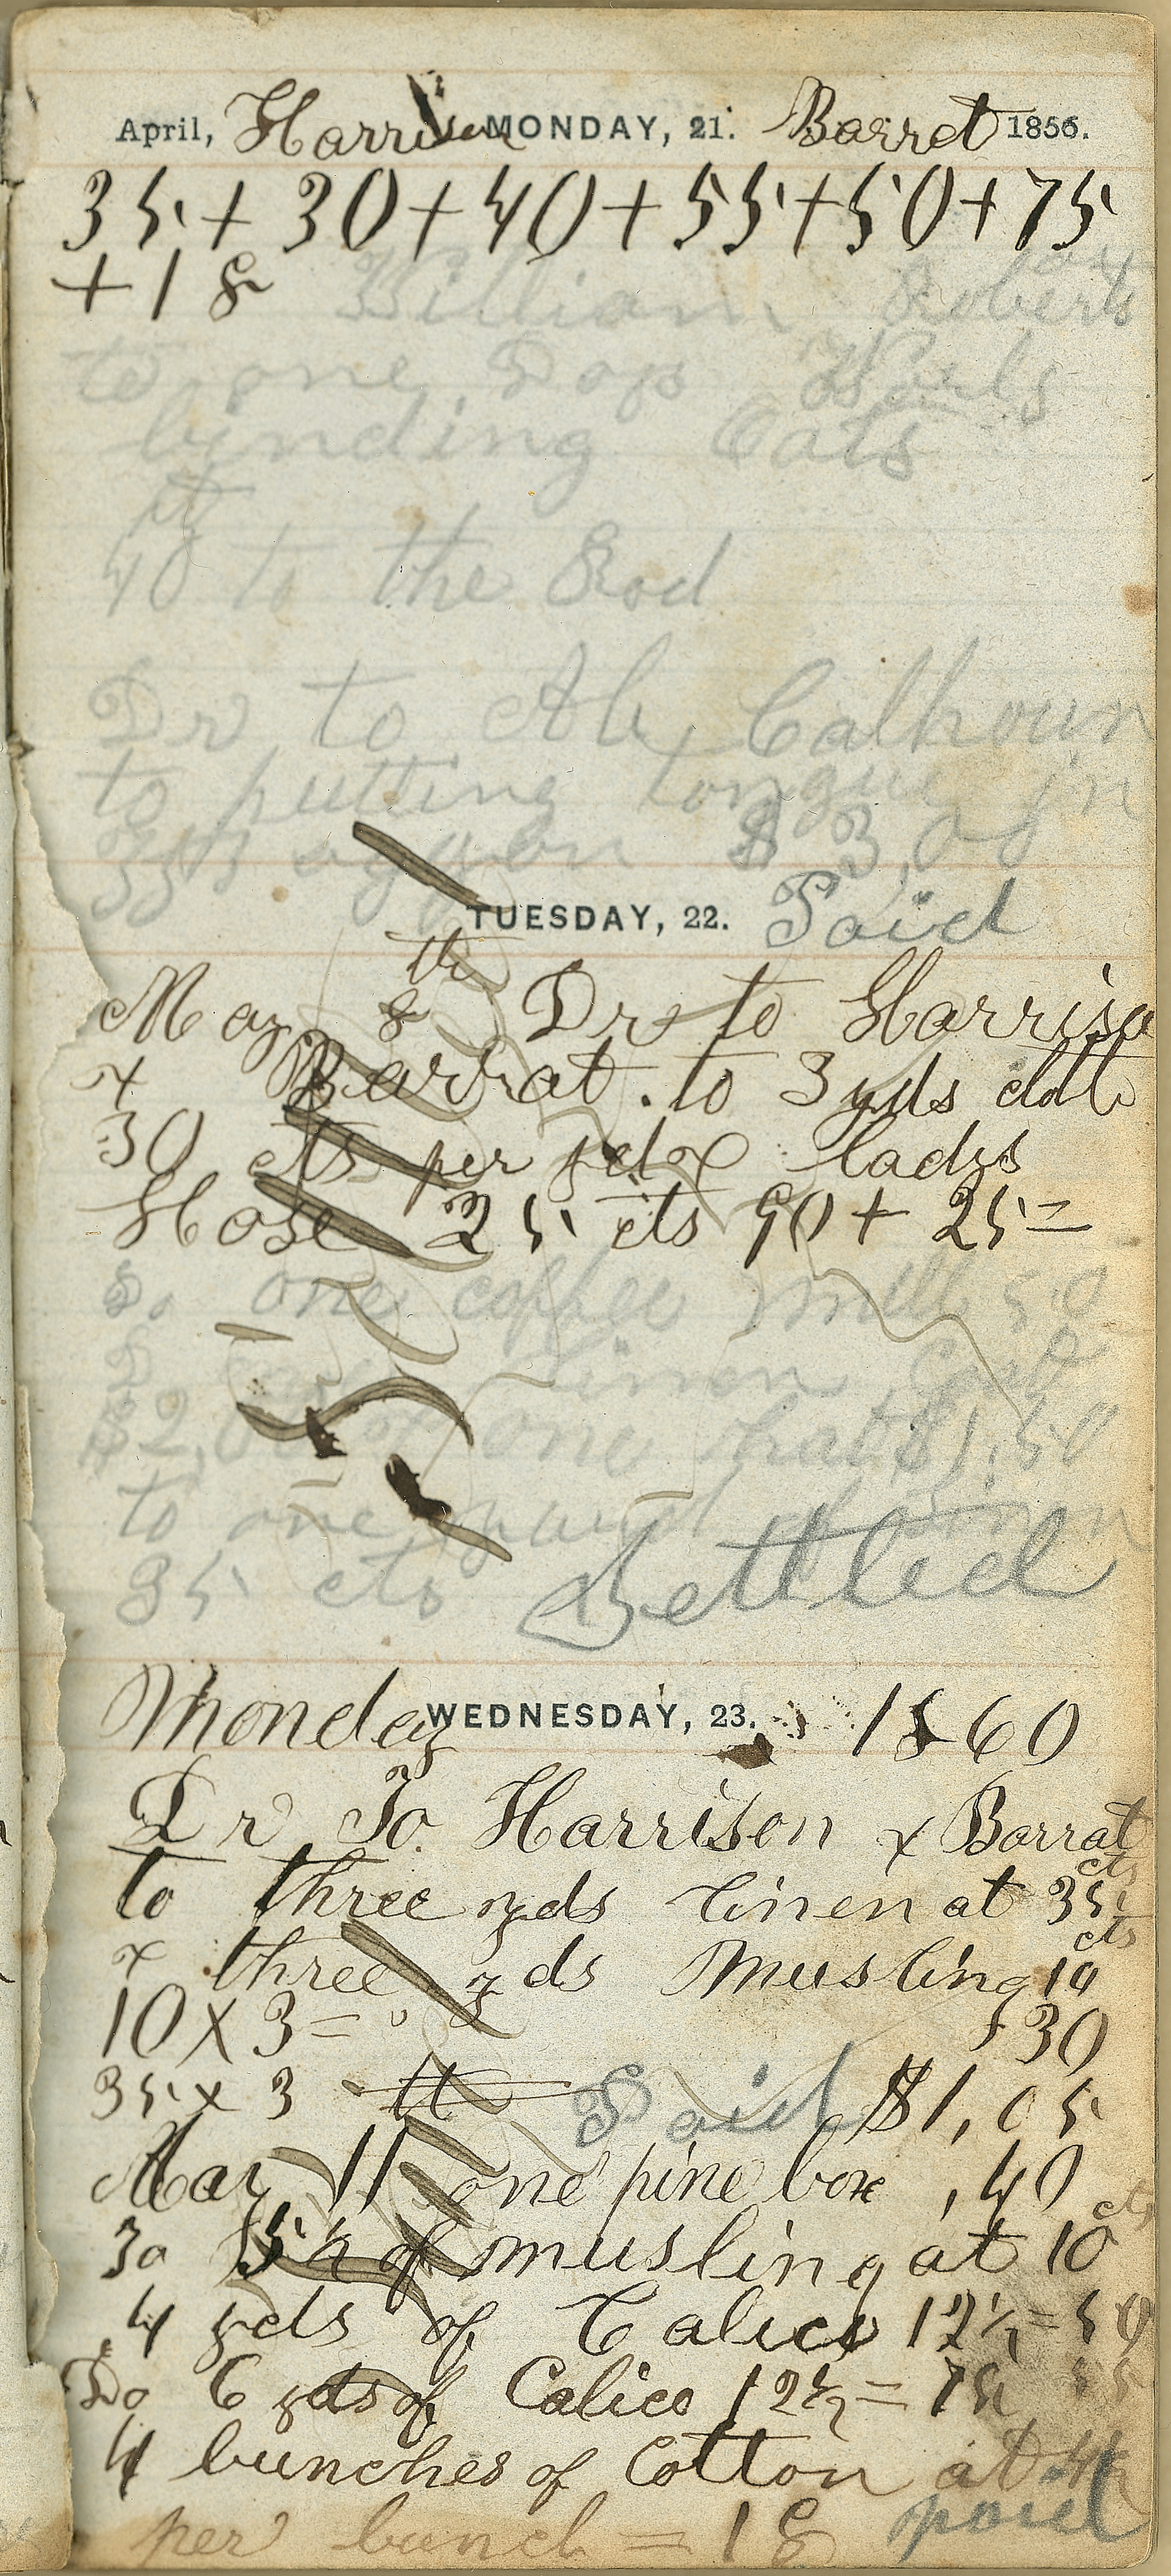 April, Harrison MONDAY, 21. Barret 1856.
35 + 30 + 40 + 55 + 50 + 75
+ 18
William Roberts
to one Days Work
binding Oats
40 to the Rod
Dr to Ab Calhoun
to putting tongue in
Waggon $ 3,00
TUESDAY, 22. Paid
May 8th Dr to Harrison
x Barrat . to 3 yds cloth
30 cts per yd x ladys
Hose 25 cts 90 + 25 =
one coffee mill 50
Linen Coat
$2, one hat $1,50
to one yard Linen
35 cts Settled
Monday WEDNESDAY, 23. 1860
Dr To Harrison x Barrat
to three yds linen at 35 cts
x three yds Musling 10 cts
10 x 3 = $30
35 x 3 Paid $1,05
May 11 one pine box ,40
Do 5 1/2 of musling at 10 cts
4 yds of Calico 12 1/2 = 50
Do 6 yds of Calico 12 1/2 = 75
4 bunches of Cotton at
per bunch = 18 paid